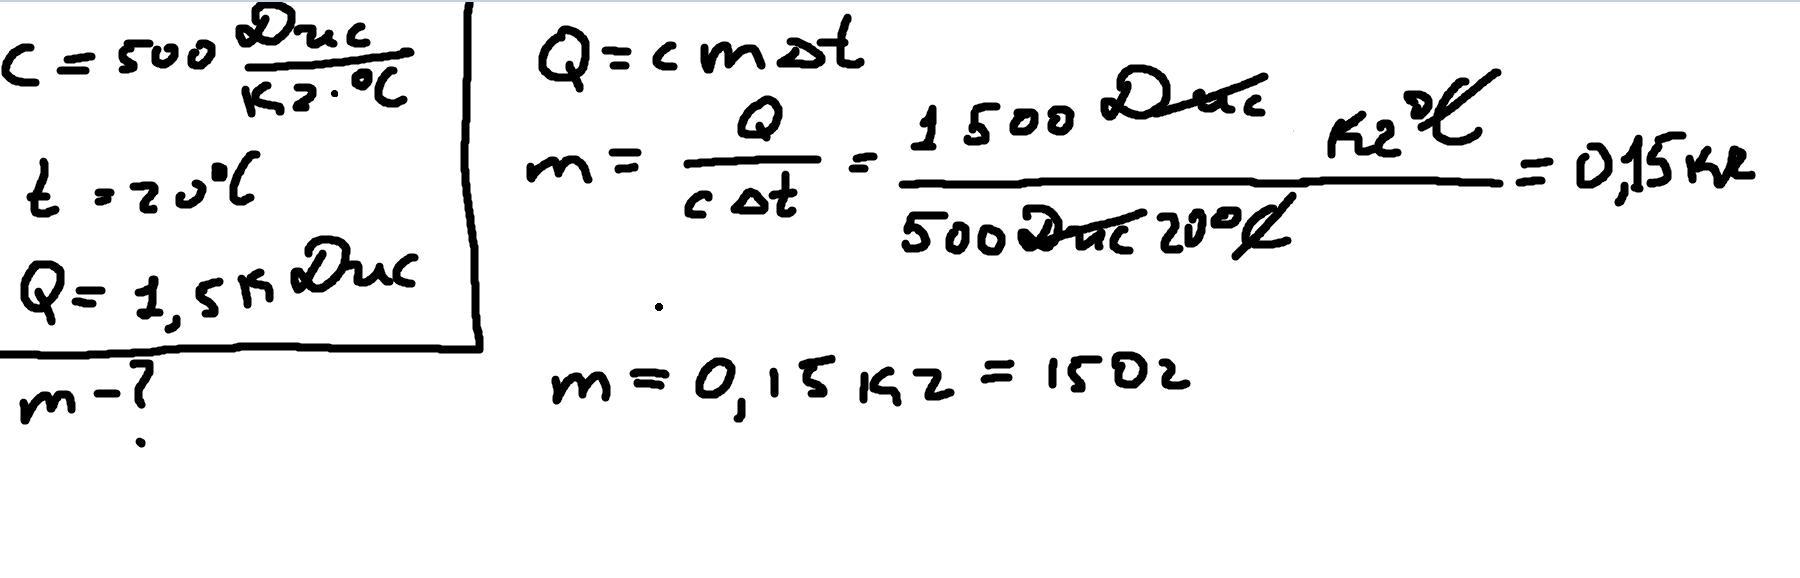 c = 500 Дж/кг·°C
t = 20°C
Q = 1,5кДж
m - ?
Q = c m Δt
m = Q/(c Δt) = (1500 Дж кг°C)/(500 Дж 20°C) = 0,15кг
m = 0,15 кг = 150г